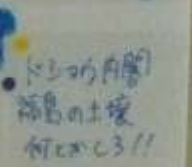 ドジョウ内閣
福島の土壌
何とかしろ!!